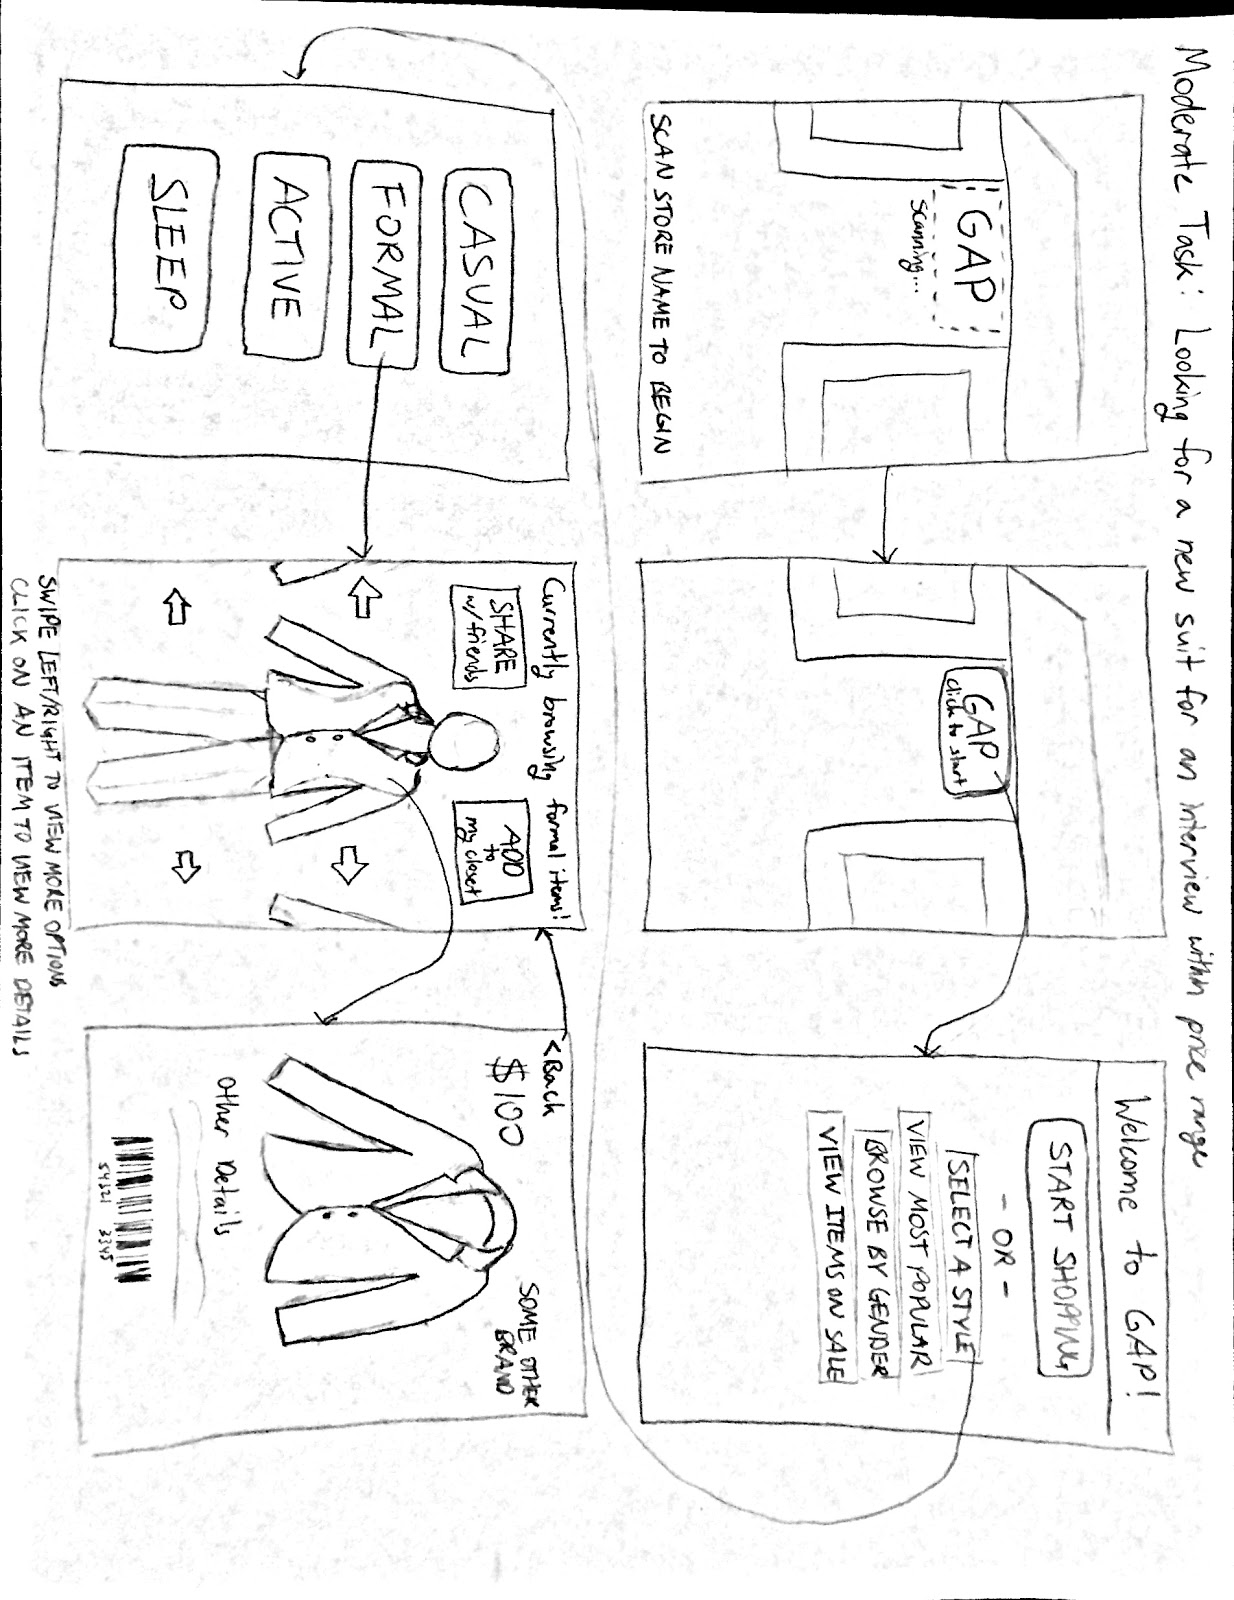 Moderate Task: Looking for a new suit for an interview within price range
GAP
scanning...
SCAN STORE NAME TO BEGIN
GAP
click to start
Welcome to GAP!
START SHOPPING
- OR -
SELECT A STYLE
VIEW MOST POPULAR
BROWSE BY GENDER
VIEW ITEMS ON SALE
CASUAL
FORMAL
ACTIVE
SLEEP
Currently browsing formal items!
SHARE
w/ friends
ADD
to
my closet
SWIPE LEFT/RIGHT TO VIEW MORE OPTIONS
CLICK ON AN ITEM TO VIEW MORE DETAILS
<Back
$100
SOME OTHER
BRAND
Other Details
54321 2345